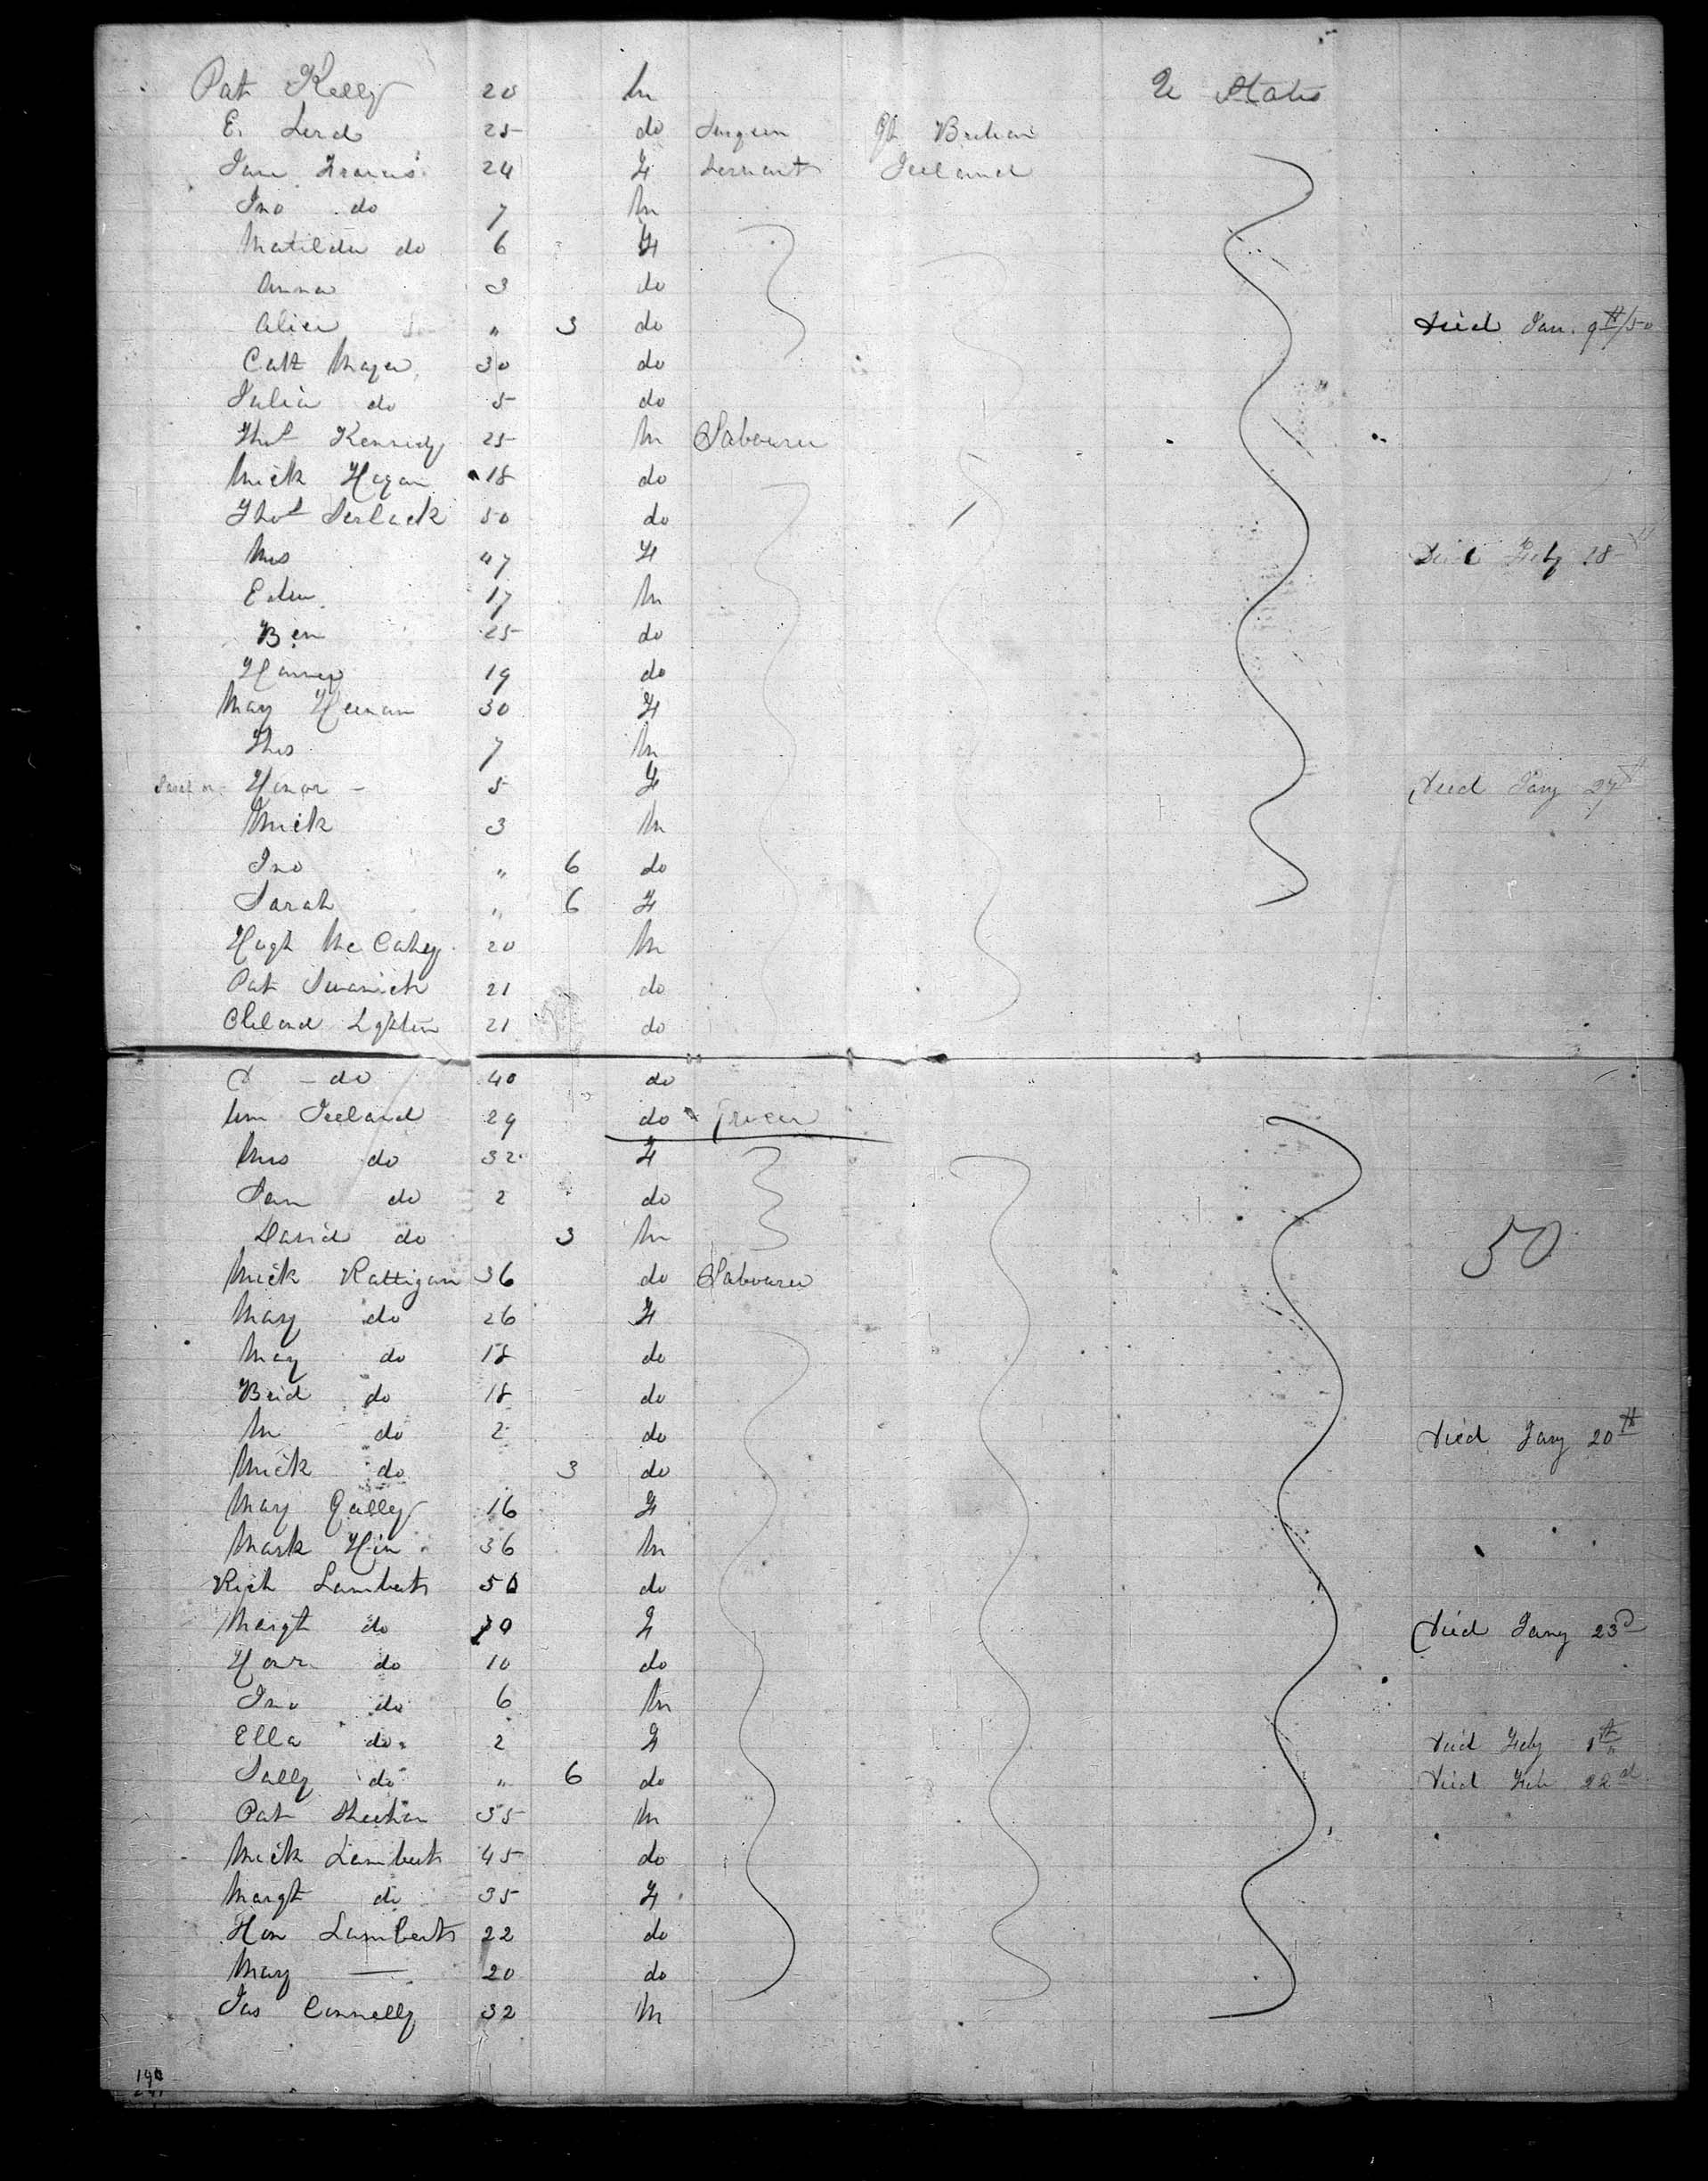 Pat Kelly 20 M U States
E. Lord 25 do Surgeon Gt Britain
Jane Francis 24 F Servant Ireland
Jno do 7 M
Matilda do 6 F
Anna 3 do
Alice " 3 do Died Jan. 9th/50
Cath Mager 30 do
Julia do 5 do
Thos Kennedy 25 M Labourer
Mick Hagan 18 do
Thos Serlack 50 do
Mrs 47 F Died Feby 18
Edw 17 M
Ben 25 do
Harry 19 do
Mary Heenan 30 F
Thos 7 M
Sarah or Honor - 5 F Died Jany 27th
Mick 3 M
Jno " 6 do
Sarah " 6 F
Hugh McCahey 20 M
Pat Swanick 21 do
Cleland 21 do
do 40 do
Wm Ireland 29 do Grocer
Mrs do 32 F
do 2 do
David do 3 M
50
Mick Rattigan 36 do Labourer
Mary do 26 F
Mary do 18 do
Brid do 18 do
M do 2 do Died Jany 20th
Mick do 3 do
Mary Gally 16 F
Mark 36 M
Rich Lambert 50 do
Margt do 30 F Died Jany 23d
Honr do 10 do
Jno do 6 M
Ella do 2 F Died Feby 1st
Sally do " 6 do Died Feb 22nd
Pat Sheehan 35 M
Mick Lambert 45 do
Margt do 35 F
Hon Lambert 22 do
Mary — 20 do
Jas Connelly 32 M
190